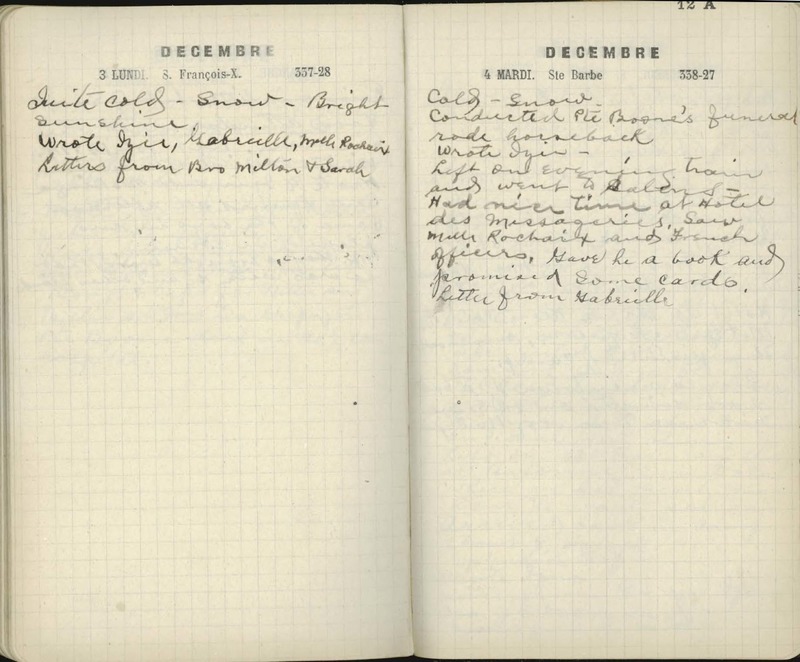 DECEMBRE
3 LUNDI. S. François-X. 337-28
Quite cold - Snow - Bright
sunshine
Wrote Izie, Gabrielle, Mlle Rochaix
Letters from Bro Milton & Sarah
12 A
DECEMBRE
4 MARDI. Ste Barbe 338-27
Cold - Snow -
Conducted Pte Boone's funeral
rode horseback
Wrote Izie -
Left on evening train
and went to
Had nice time at Hotel
des Messageries, Saw
Mlle Rochaix and French
officers, Gave he a book and
promised some cards.
Letter from Gabrielle